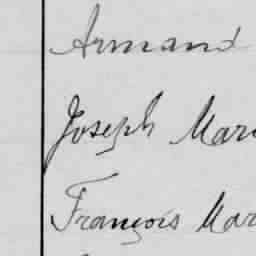 Armand
Joseph Mari
François Mar